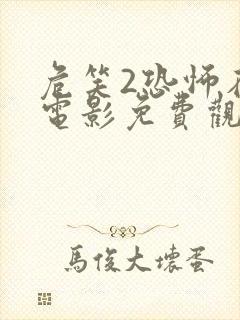 危笑2恐怖
電影免費觀
馬俊大壞蛋